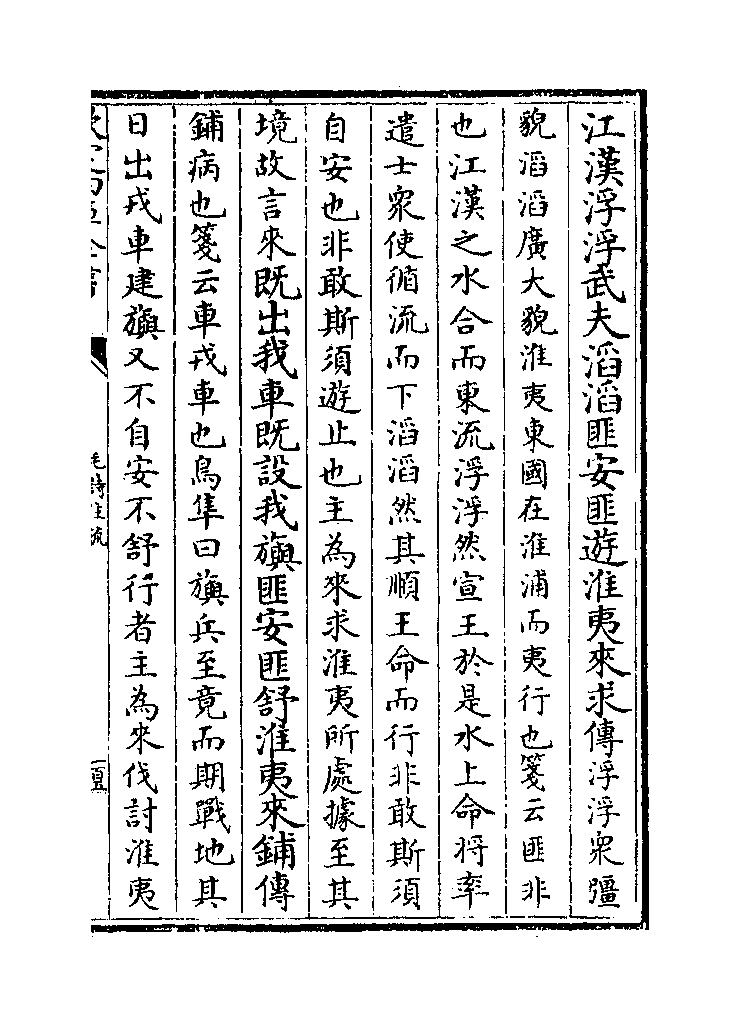 江漢浮浮武夫滔滔匪安匪遊淮夷來求傳浮浮衆彊
貌滔滔廣大貌淮夷東國在淮浦而夷行也箋云匪非
也江漢之水合而東流浮浮然宣王於是水上命將率
遣士衆使循流而下滔滔然其順王命而行非敢斯須
自安也非敢斯須遊止也主為來求淮夷所處據至其
境故言來既出我車既設我旟匪安匪舒淮夷來鋪傳
鋪病也箋云車戎車也鳥隼曰旟兵至竟而期戰地其
日出戎車建旟又不自安不舒行者主為來伐討淮夷
毛詩注疏